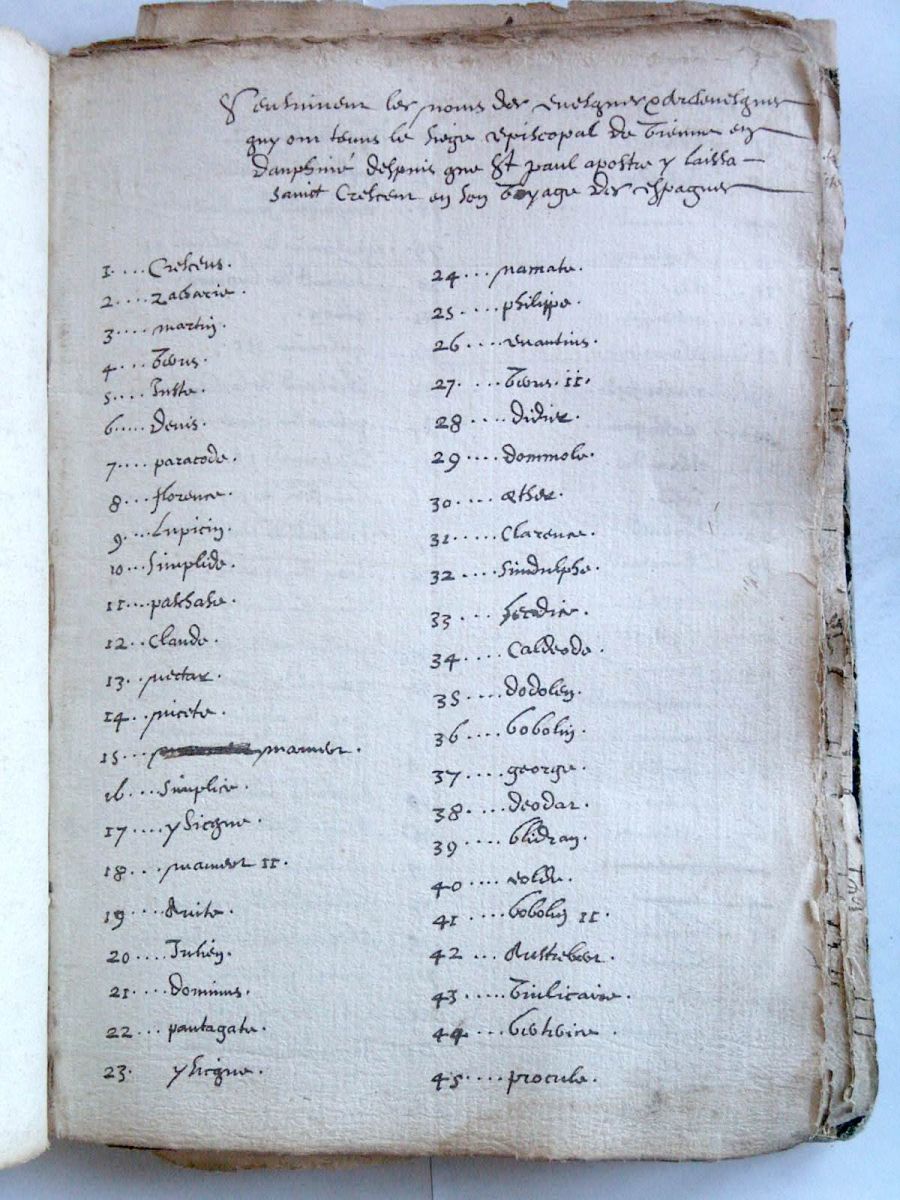 Sensuiuent les noms des euesques & archeuesques
quy ont tenus le siege episcopal de Vienne en
dauphiné despuis que St paul apostre y laissa
sainct Crescent en son Voyage des espagnes
1 .... Crescens.
2 .... zabarie.
3 .... martin.
4 .... Verus.
5 .... Juste.
6 .... denis.
7 .... paracode.
8 ... florence.
9 ... Lupicin.
10 ... simplide.
11 ... paschase.
12 .. Claude.
13 .. nectar.
14 ... nicete.
15 ... mamert.
16 ... simplice.
17 .... ysicque.
18 ... mamert II.
19 .... Auite.
20 .... Julien.
21 .... dominus.
22 ... pantagate.
23. ysicque.
24 ... namate.
25 .... philippe.
26 .... euantius.
27. ... Verus. II.
28 .... didier.
29 .... dommole.
30 .... æther.
31 ..... Clarence.
32 .... sindulphe.
33 ... hecdice.
34 .... Caldeode.
35 .... dodolen.
36 .... bobolin.
37 .... george.
38 .... deodat.
39 .... blidran.
40 .... eolde.
41 .... bobolin II.
42 ... Austrebert.
43 ..... Viulicaire.
44 .... bertherice.
45 .... procule.